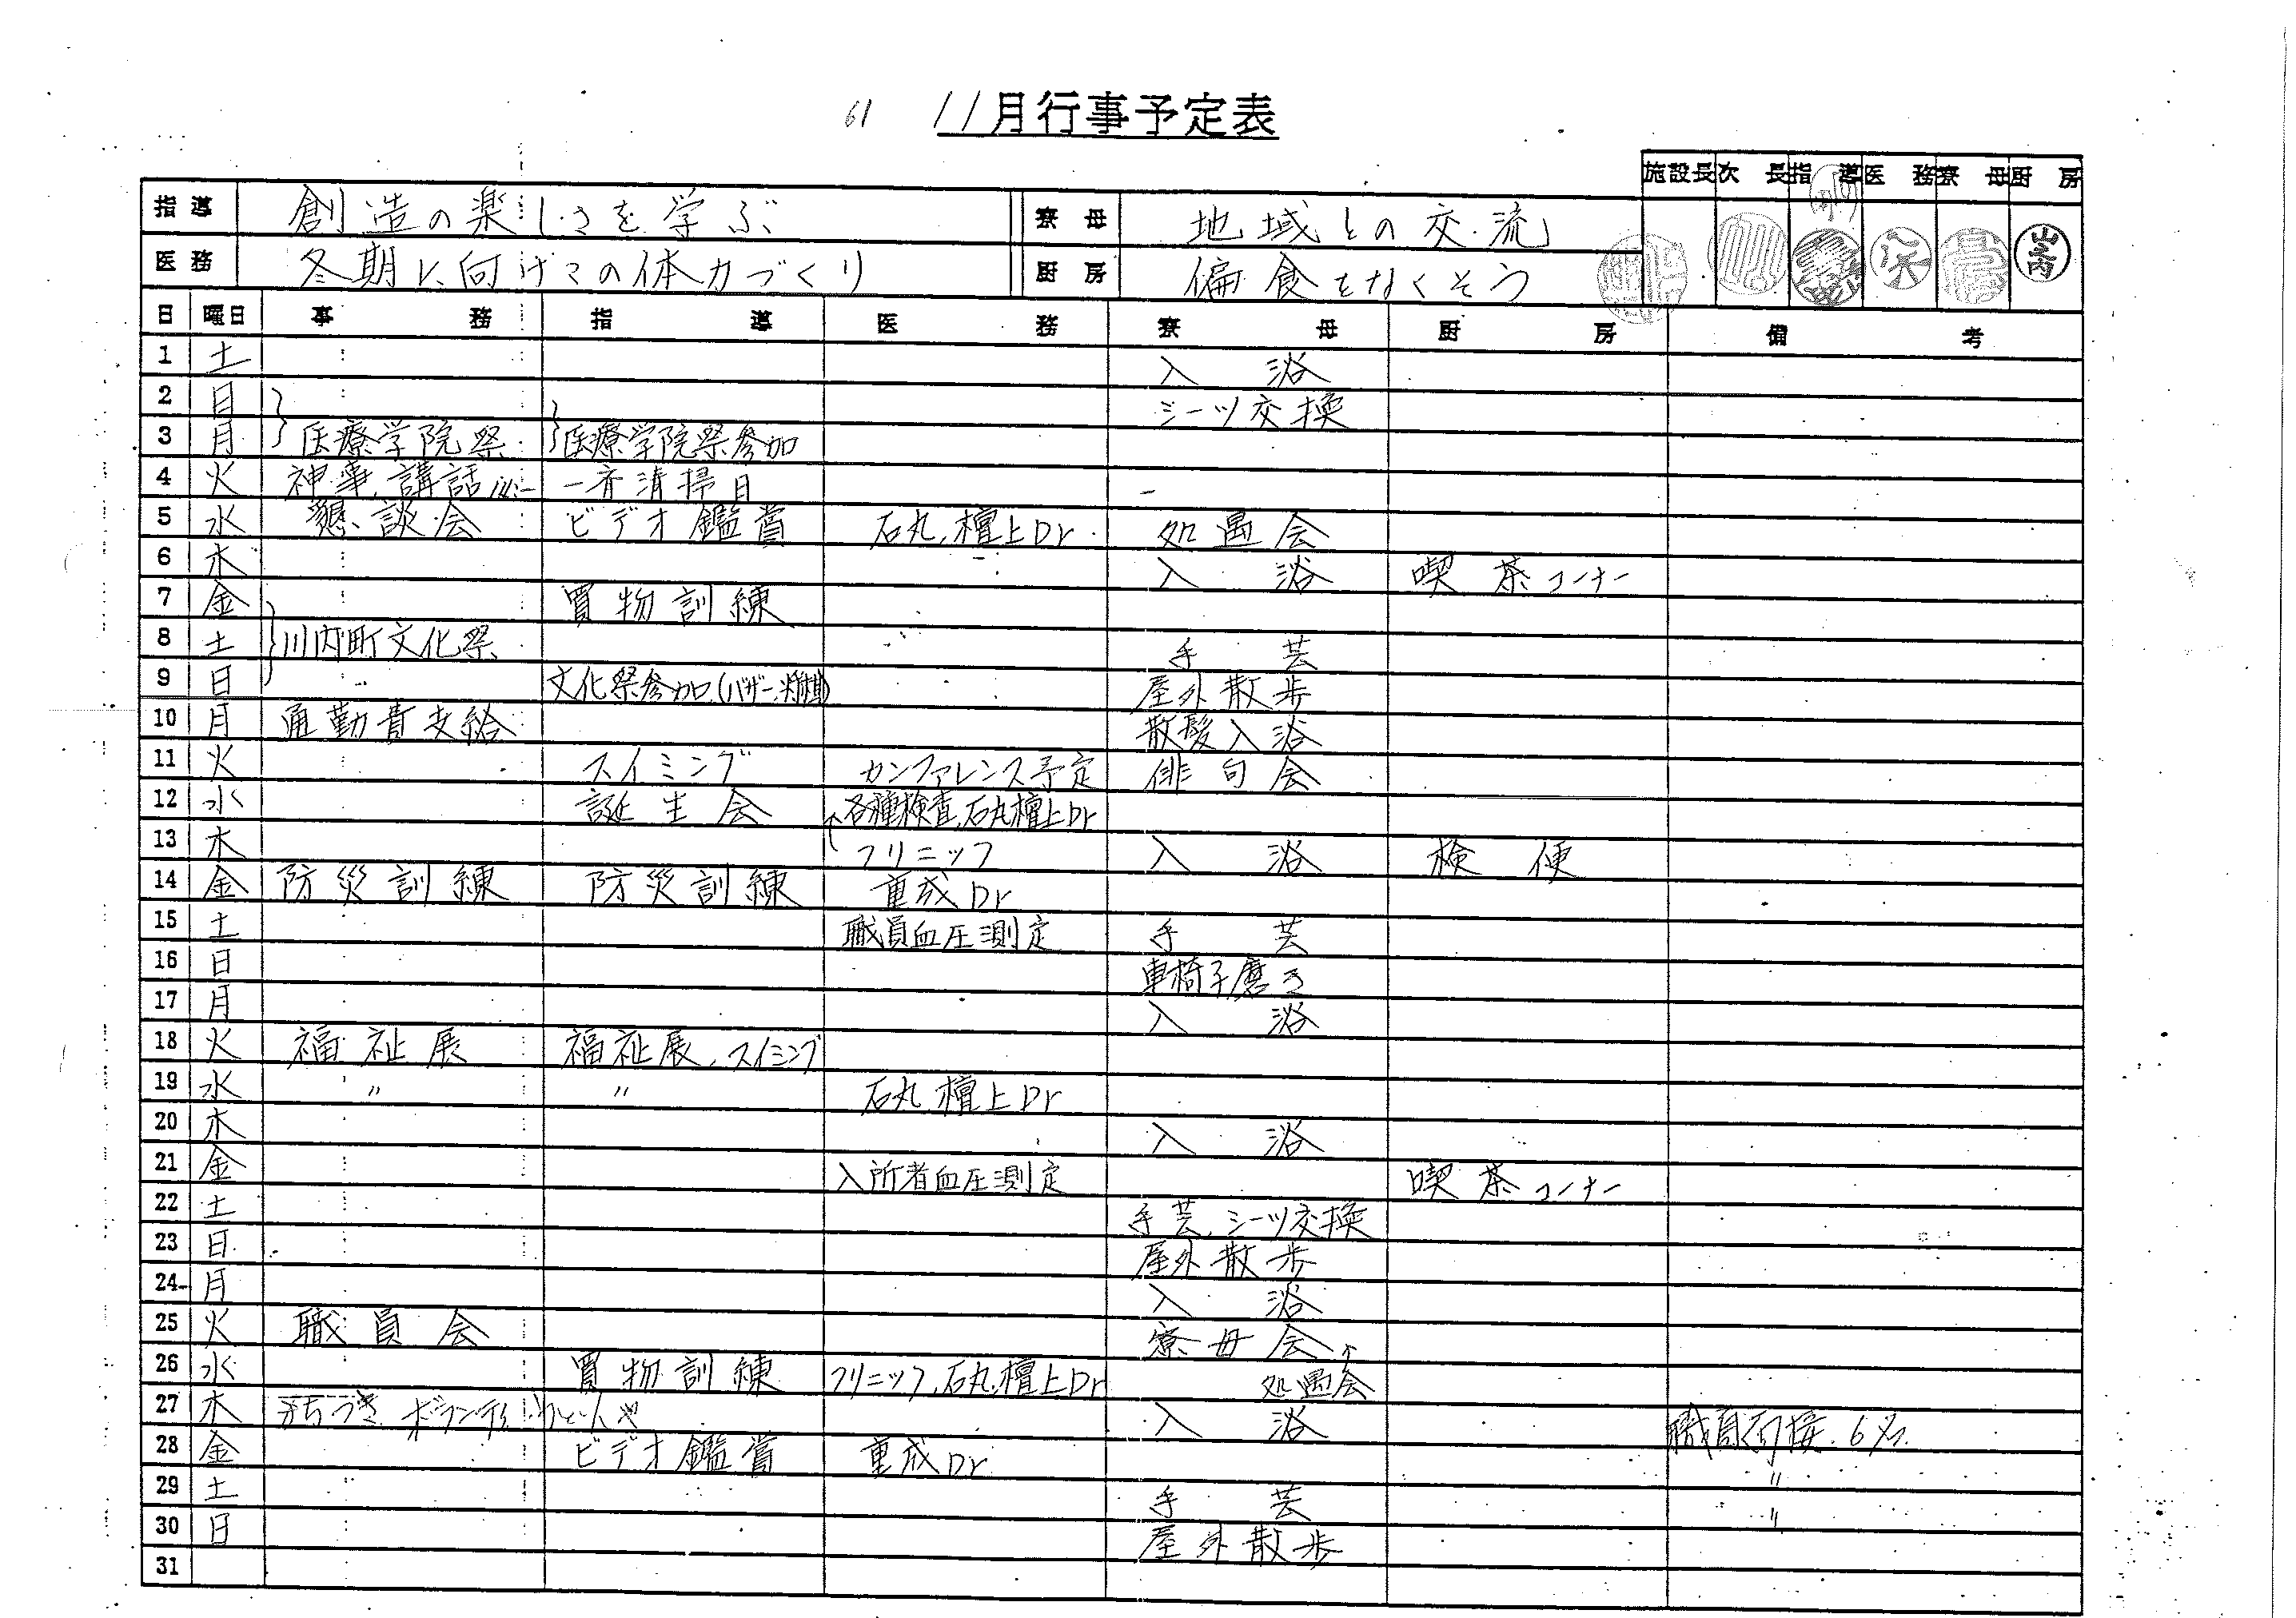 61 11月行事予定表
施設長 次長 指導 医務 寮母 厨房
指導 創造の楽しさを学ぶ 寮母 地域との交流
医務 冬期に向けての体力づくり 厨房 偏食をなくそう
日 曜日 事務 指導 医務 寮母 厨房 備考
1 土 入浴
2 日 シーツ交換
3 月 医療学院祭 医療学院祭参加
4 火 神事、講話 一斉清掃日
5 水 懇談会 ビデオ鑑賞 石丸、檀上Dr 処遇会
6 木 入浴 喫茶コーナー
7 金 買物訓練
8 土 川内町文化祭 手芸
9 日 文化祭参加(バザー、) 屋外散歩
10 月 通勤費支給 散髪入浴
11 火 スイミング カンファレンス予定 俳句会
12 水 誕生会 各種検査、石丸檀上Dr
13 木 ↑クリニック 入浴 検便
14 金 防災訓練 防災訓練 重成Dr
15 土 職員血圧測定 手芸
16 日 車椅子磨き
17 月 入浴
18 火 福祉展 福祉展、スイミング
19 水 〃 〃 石丸、檀上Dr
20 木 入浴
21 金 入所者血圧測定 喫茶コーナー
22 土 手芸、シーツ交換
23 日 屋外散歩
24 月 入浴
25 火 職員会 寮母会
26 水 買物訓練 クリニック、石丸、檀上Dr 処遇会↑
27 木 もちつき ボランティア 入浴 職員面接 6名
28 金 ビデオ鑑賞 重成Dr 〃
29 土 手芸 〃
30 日 屋外散歩
31